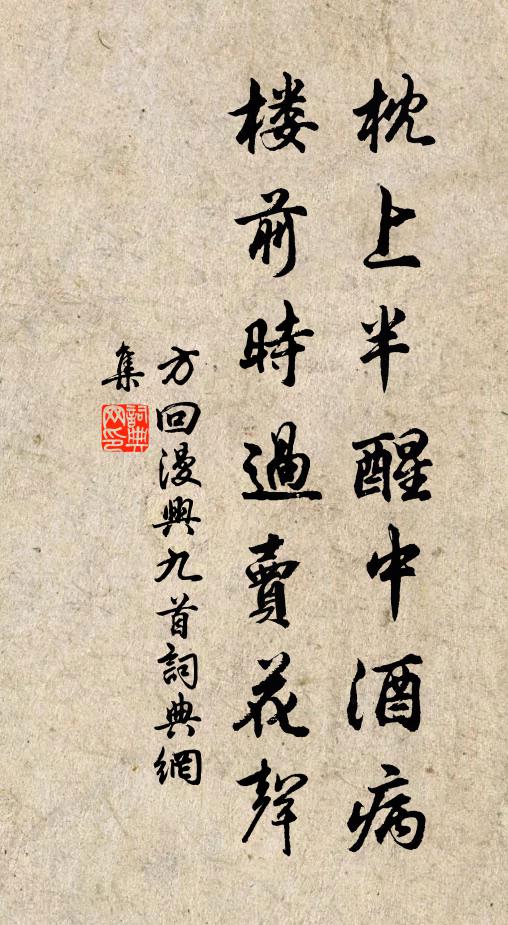 枕上半醒中酒病
楼前時過賣花聲
方回漫興九首詞典網
集
詞典网印